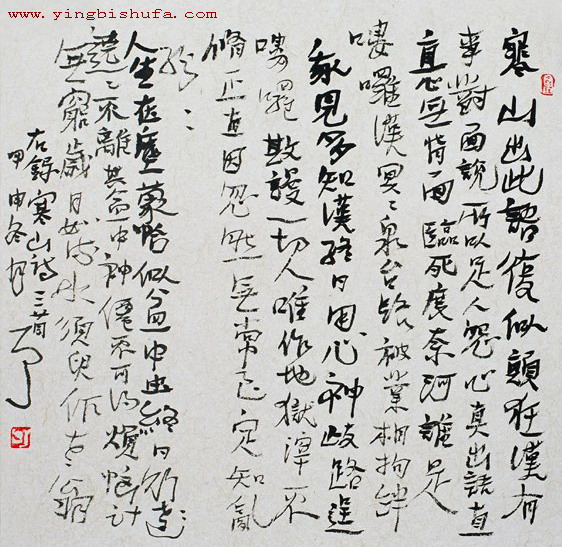 www.yingbishufa.com
寒山出此語復似顛狂漢有
事對面說所以足人怨心真出語直
直心無背面臨死度奈河誰是
嘍囉漢冥〻泉台路被業相拘絆
我見多知漢終日用心神岐路逞
嘍囉欺謾一切人唯作地獄滓不
脩正直因忽然無常至定知亂
紛〻
人生在塵蒙恰似盆中虫終日行遶
遶〻不離其盆中神僊不可得煩惱計
無窮歲月如流水須臾作老翁
右録寒山詩三首
甲申冬月